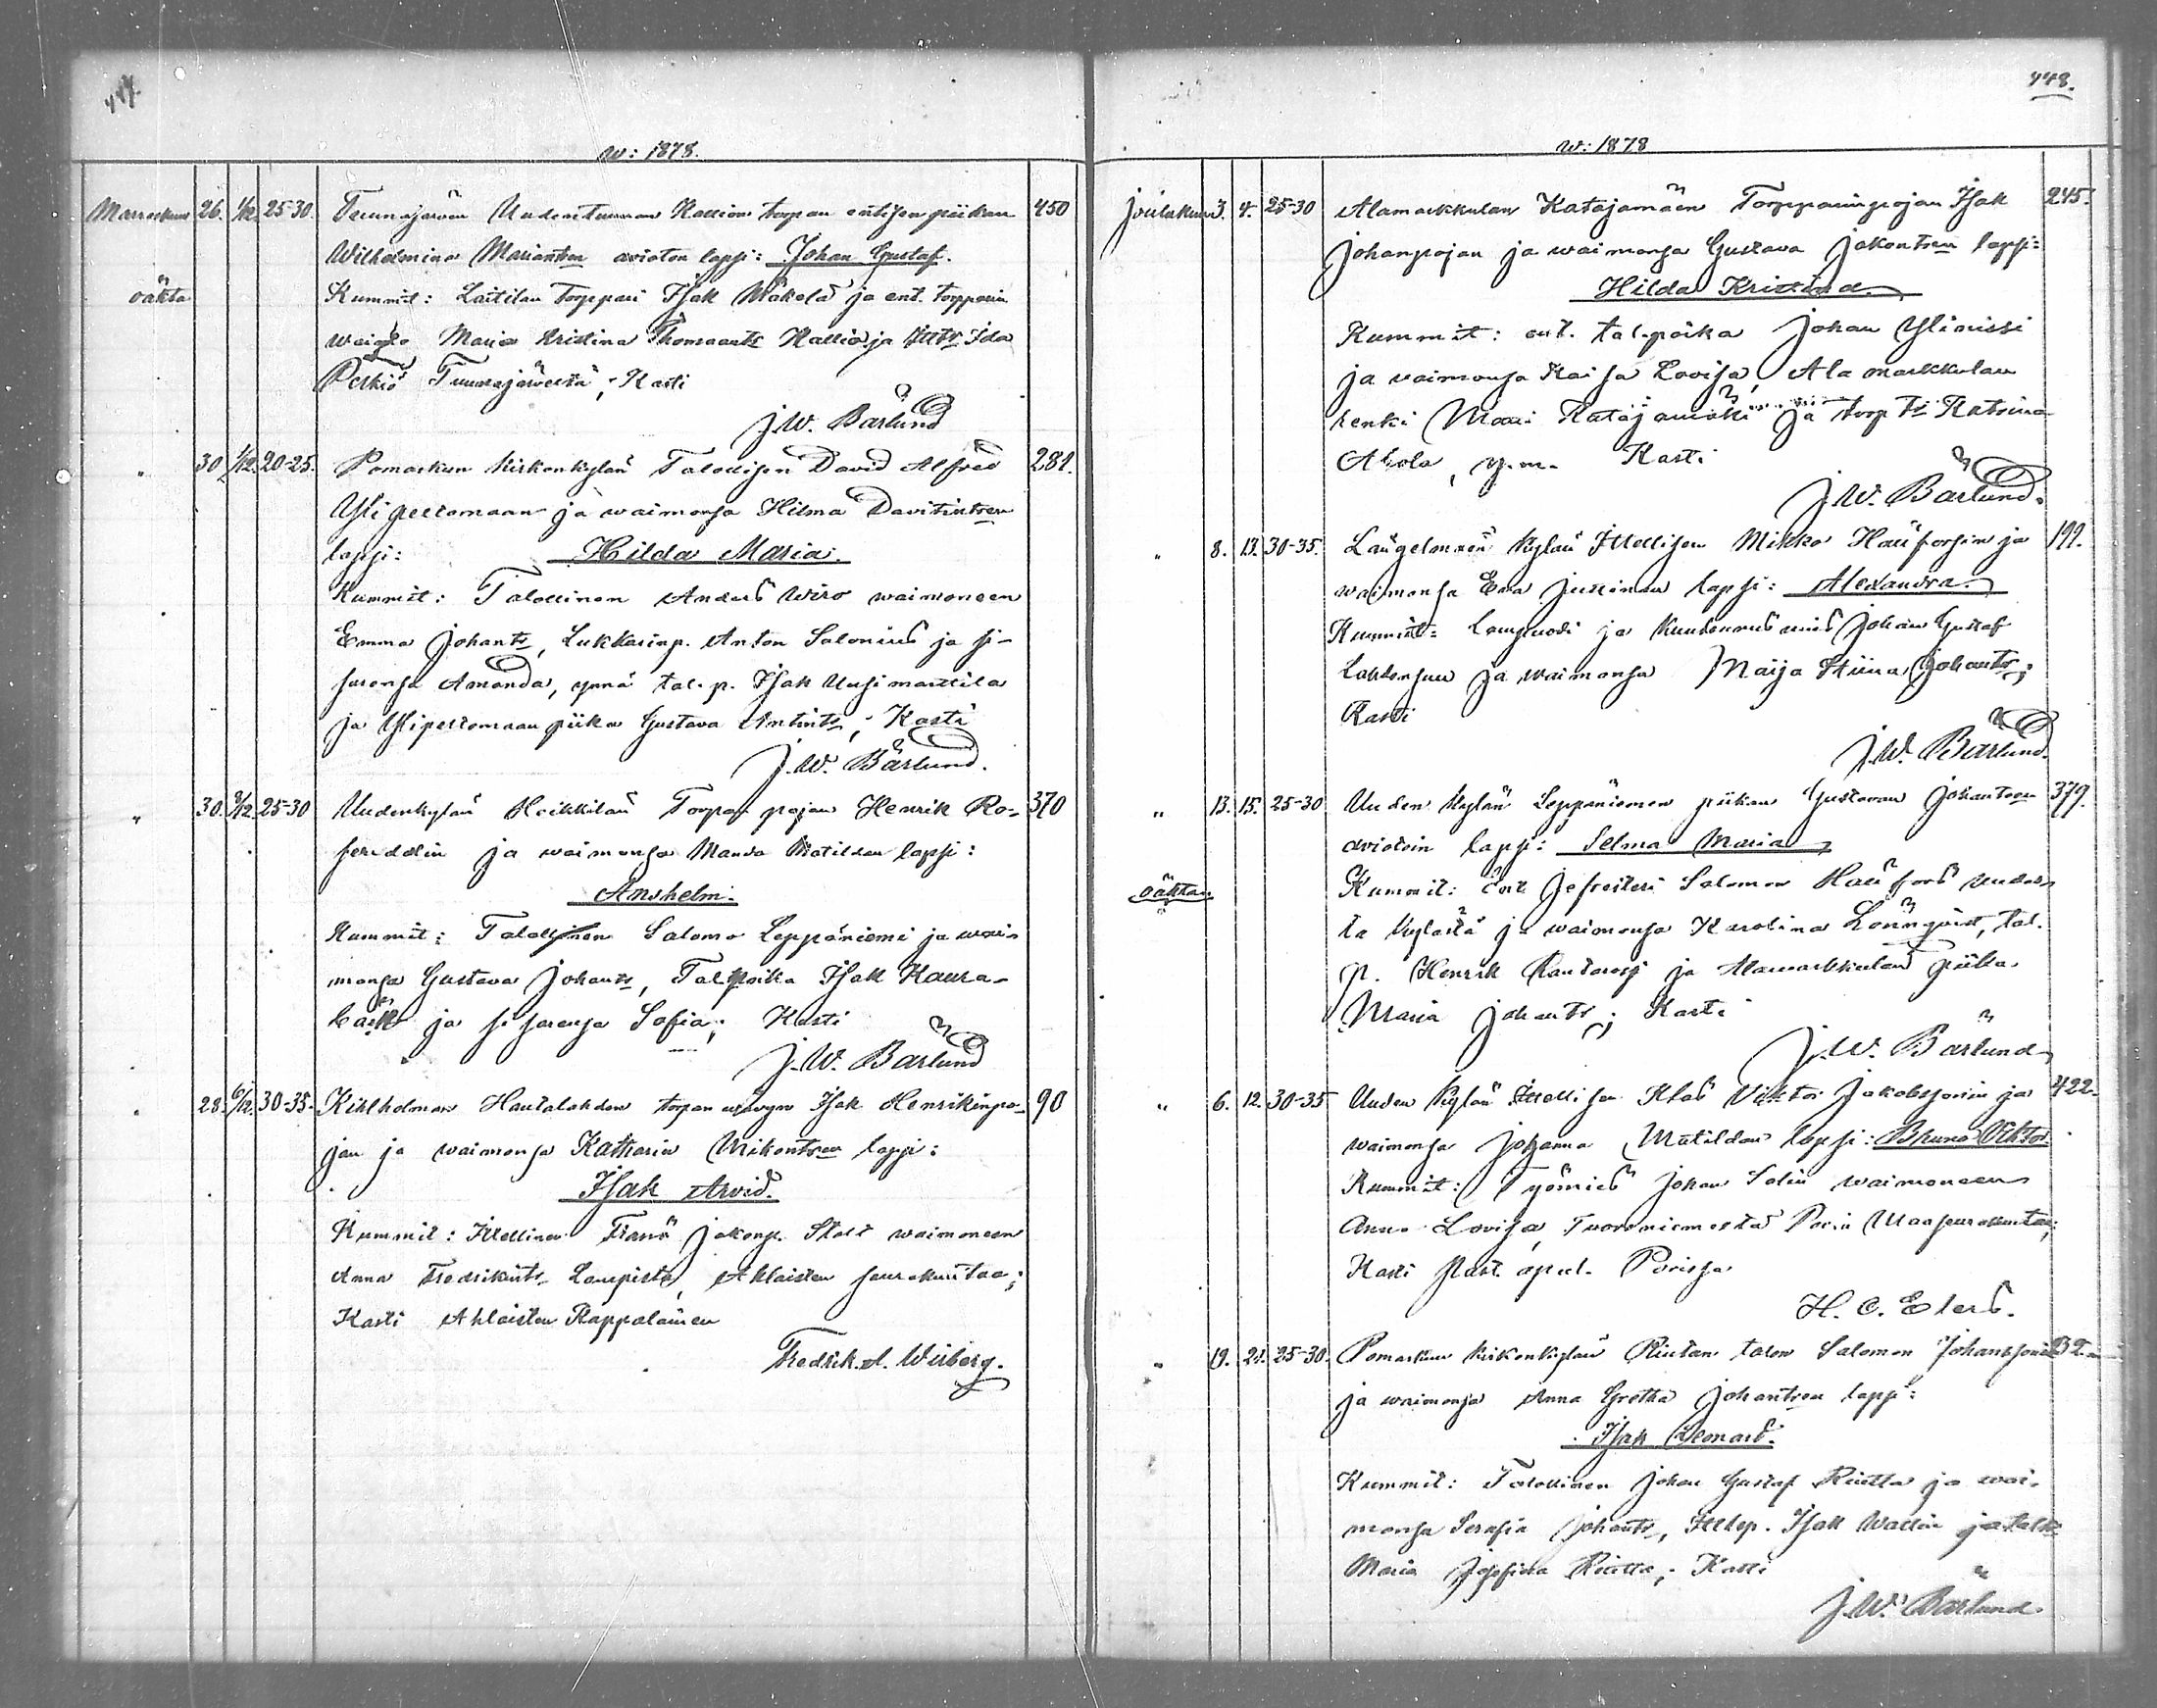 447.
w: 1878.
Marraskuu 26. 1/12. 25-30. Tuunajärven Uudentuvan Kallion torpan entisen piikan 450
Wilhelmina Mariantsen avioton lapsi: Johan Gustaf.
oäkta Kummit: Laitilan Torppari Isak Mäkelä ja ent. torpparin
waimo Maria Kristina Thomaantr Kallio ja Ittltr Ida
Perkiö Tuunajärveltä; Kasti
J.W. Bärlund
" 30 1/12. 20-25. Pomarkun kirkonkylän Talollisen David Alfred 281.
Ylipertomaan ja waimonsa Hilma Davitintsen
lapsi: Hilda Maria.
Kummit: Talollinen Anders Wiro waimoneen
Emma Johantr, Lukkarinp. Anton Salonius ja si-
sarensa Amanda, ynnä tal. p. Isak Uusimarttila
ja Ylipertomaan piika Gustava Antintr; Kasti
J.W. Bärlund.
" 30. 8/12. 25-30 Uudenkylän Heikkilän Torpan pojan Henrik Ro- 370
sendalin ja waimonsa Manda Matildan lapsi:
Anshelm.
Kummit: Talollinen Salomo Leppäniemi ja wai-
monsa Gustava Johantr, Tal.poika Isak Kaura-
ja sisarensa Sofia; Kasti
J.W. Bärlund
" 28. 6/12. 30-35. Kihlholman Hautalahden torpan Isak Henrikinpo- 90
jan ja waimonsa Katharia Mikontsen lapsi:
Isak Arvid.
Kummit: Itellinen Frans Jakonp. Stolt waimoneen
Anna Fredrikintr Lampista, Ahlaisten seurakuntaa;
Kasti Ahlaisten Kappalainen
Fredrik. A. Wiberg.
448.
w: 1878
Joulukuu 3. 4. 25-30 Alamarkkulan Katajamäen Torpparinpojan Isak 245.
Johanpojan ja waimonsa Gustava Jakontsen lapsi:
Hilda Kristina.
Kummit: ent. tal.poika Johan Ylinissi
ja vaimonsa Kaisa Lovisa, Alamarkkulan
renki Mari Katajamäki ja torp. tr Katrina
Ahola, y.m. Kasti
J.W. Bärlund.
" 8. 13. 30-35. Längelmäen kylän Itellisen Mikko Hanforsin ja 199.
waimonsa Eva Justinan lapsi: Alexandra.
Kummit: Lampuodi ja Kuudennusmies Johan Gustaf
ja waimonsa Maija Stiina Johantr;
Kasti
J.W. Bärlund.
" 13. 15. 25-30 Uuden kylän Leppäniemen piikan Gustavan Johantsen 379.
aviotoin lapsi: Selma Maria
oäktan Kummit: Ent. Jefreiteri Salomon Hanfors Uudes-
ta kylästä ja waimonsa Karolina Lönnqvist, tal.
p. Henrik ja Alamarkkulan piika
Maria Johantr; Kasti
J.W. Bärlund
" 6. 12. 30-35 Uuden kylän Itellisen Klas Viktor Jakobssonin ja 422.
waimonsa Johanna Matildan lapsi: Bruno Viktor.
Kummit: Työmies Johan Salin waimoneen
Anna Lovisa, Tuorniemestä Porin Maaseurakuntaa;
Kasti Past. apul. Porissa
H. C. Elers.
" 19. 21. 25-30. Pomarkun kirkonkylän Riutan talon Salomon Johanssonin 32.
ja waimonsa Anna Gretha Johantsen lapsi:
Isak Leonard.
Kummit: Talollinen Johan Gustaf Riutta ja wai-
monsa Serafia Johantr, Itllsp. Isak Wallin ja taltr
Maria Josefina Riutta; Kasti
J.W. Bärlund